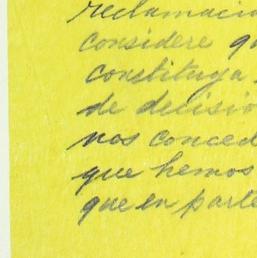 reclamacio
considere q
constituya
de decisio
nos conced
que hemos
que en parte